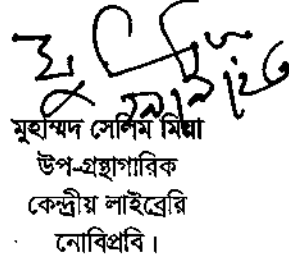 মুহাম্মদ সেলিম মিয়া
উপ-গ্রন্থাগারিক
কেন্দ্রীয় লাইব্রেরি
নোবিপ্রবি।